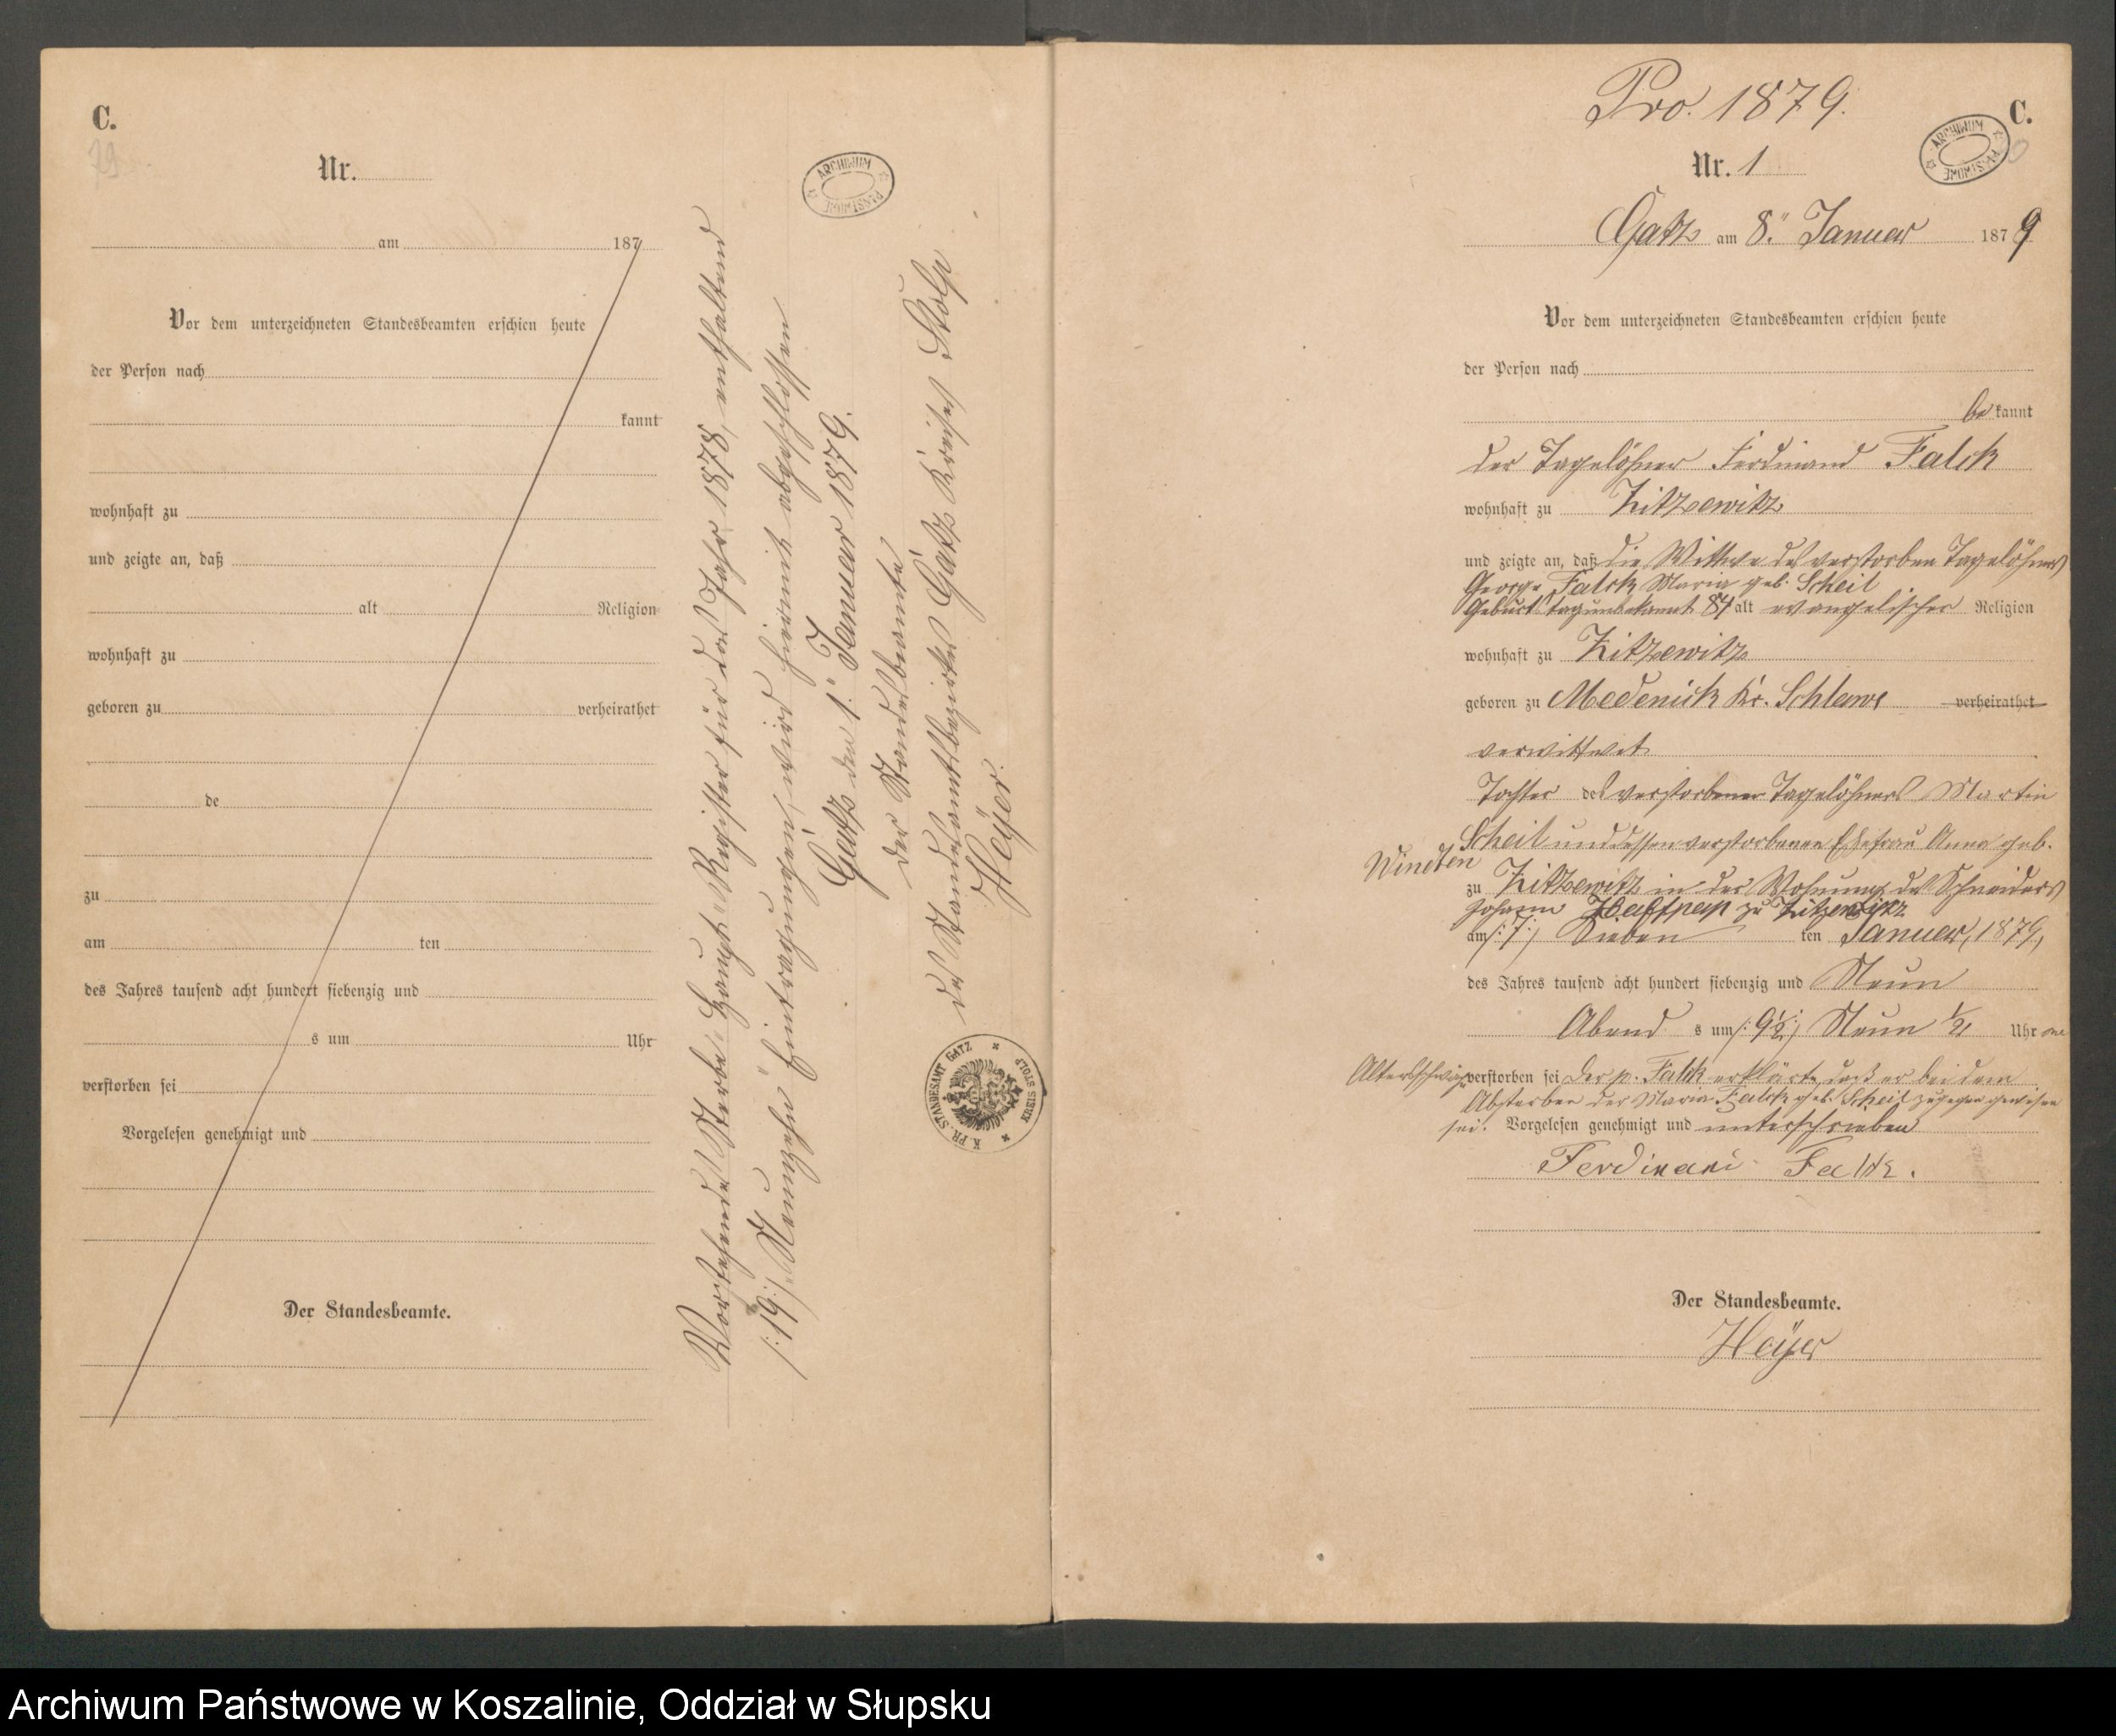 C.
Nr.
am 187
Vor dem unterzeichneten Standesbeamten erschien heute
der Person nach
kannt
wohnhaft zu
und zeigte an, daß
alt Religion
wohnhaft zu
geboren zu verheirathet
de
zu
am ten
des Jahres tausend acht hundert siebenzig und
s um Uhr
verstorben sei
Vorgelesen genehmigt und
Der Standesbeamte.
Vorstehendes Sterbe-Haupt-Register für das Jahr 1878, enthaltend
/:19:/ "Neunzehn" Eintragungen, wird hiermit abgeschlossen
Gatz den 1. Januar 1879.
Der Standesbeamte
des Standesamtsbezirkes Gatz Kreises Stolp
Heyer.
ARCHIWUM PAŃSTWOWE
K. PR. STANDESAMT GATZ
KREIS STOLP
Pro. 1879.
C.
ARCHIWUM PAŃSTWOWE
Nr. 1
Gatz am 8. Januar 1879
Vor dem unterzeichneten Standesbeamten erschien heute
der Person nach
bekannt
der Tagelöhner Ferdinand Falck
wohnhaft zu Zitzewitz
und zeigte an, daß die Wittwe des verstorben Tagelöhners
George Falck Maria geb. Scheil
Geburtstag unbekannt 84 alt evangelischer Religion
wohnhaft zu Zitzewitz
geboren zu Medenick Kr. Schlawe verheirathet
verwittwet
Tochter des verstorbenen Tagelöhners Martin
Scheil und dessen verstorbenen Ehefrau Anna geb.
Windten
zu Zitzewitz in der Wohnung des Schneiders
Johann zu Zitzewitz
am /:7:/ Sieben ten Januar, 1879,
des Jahres tausend acht hundert siebenzig und Neun
Abend s um /:9½:/ Neun ½ Uhr an
Altersschwäche verstorben sei Der p. Falck erklärte, daß er bei dem
Absterben der Maria Falck geb. Scheil zugegen gewesen
sei. Vorgelesen genehmigt und unterschrieben
Ferdinand Falck.
Der Standesbeamte.
Heyer
Archiwum Państwowe w Koszalinie, Oddział w Słupsku